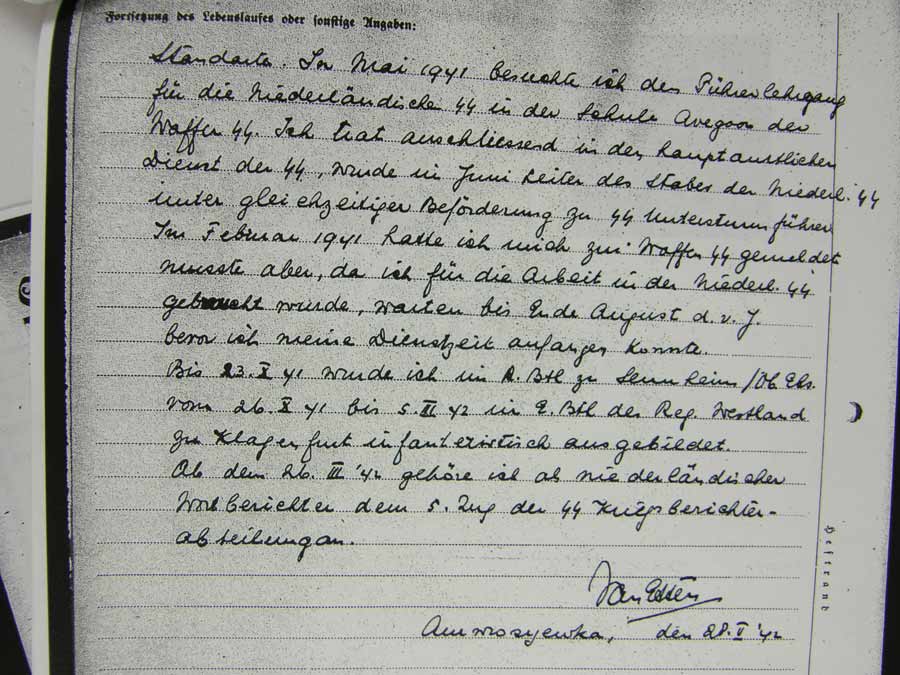 Fortsetzung des Lebenslaufes oder sonstige Angaben:
Standarte. Im Mai 1941 besuchte ich den Führerlehrgang
für die Niederländische SS in der Schule Avegoor der
Waffen SS. Ich trat anschliessend in den hauptamtlichen
Dienst der SS, wurde im Juni Leiter des Stabes der Niederl. SS
unter gleichzeitiger Beförderung zu SS Untersturmführer
Im Februar 1941 hatte ich mich zur Waffen SS gemeldet
musste aber, da ich für die Arbeit in der Niederl. SS
gebraucht wurde, warten bis Ende August d. v. J.
bevor ich meine Dienstzeit anfangen konnte.
Bis 23. X 41 wurde ich im A. Btl zu Sennheim /Ob. Els.
vom 26. X 41 bis 5. III 42 im E. Btl des Reg. Westland
zu Klagenfurt infanteristisch ausgebildet.
Ab dem 26. III '42 gehöre ich als niederländischer
Wortberichter dem 5. Zug der SS Kriegsberichter-
abteilung an.
Van Etten
den 28. V '42
Heftrand